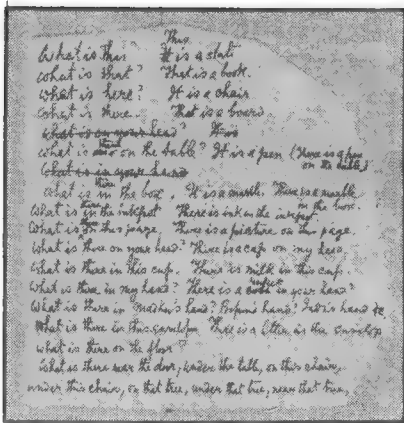 This
What is this It is a slate
What is that? That is a book.
What is here? It is a chair
What is there. That is a board
What is on your head? It is
What is there on the table? It is a pen (There is a pen
on the table)
What is in your hand
What is there in the box. It is a marble. There is a marble
in the box.
What is there in the inkpot There is ink in the inkpot.
What is there on this page. There is a picture on this page.
What is there on your head? There is a cap on my head
What is there in this cup. There is milk in this cup.
What is there in my hand? There is a in your hand?
What is there in hand? hand? hand
What is there in this envelope There is a letter in the envelop
What is there on the floor
What is there near the door, under the table, on this chair,
under this chair, on that tree, under that tree, near that tree,